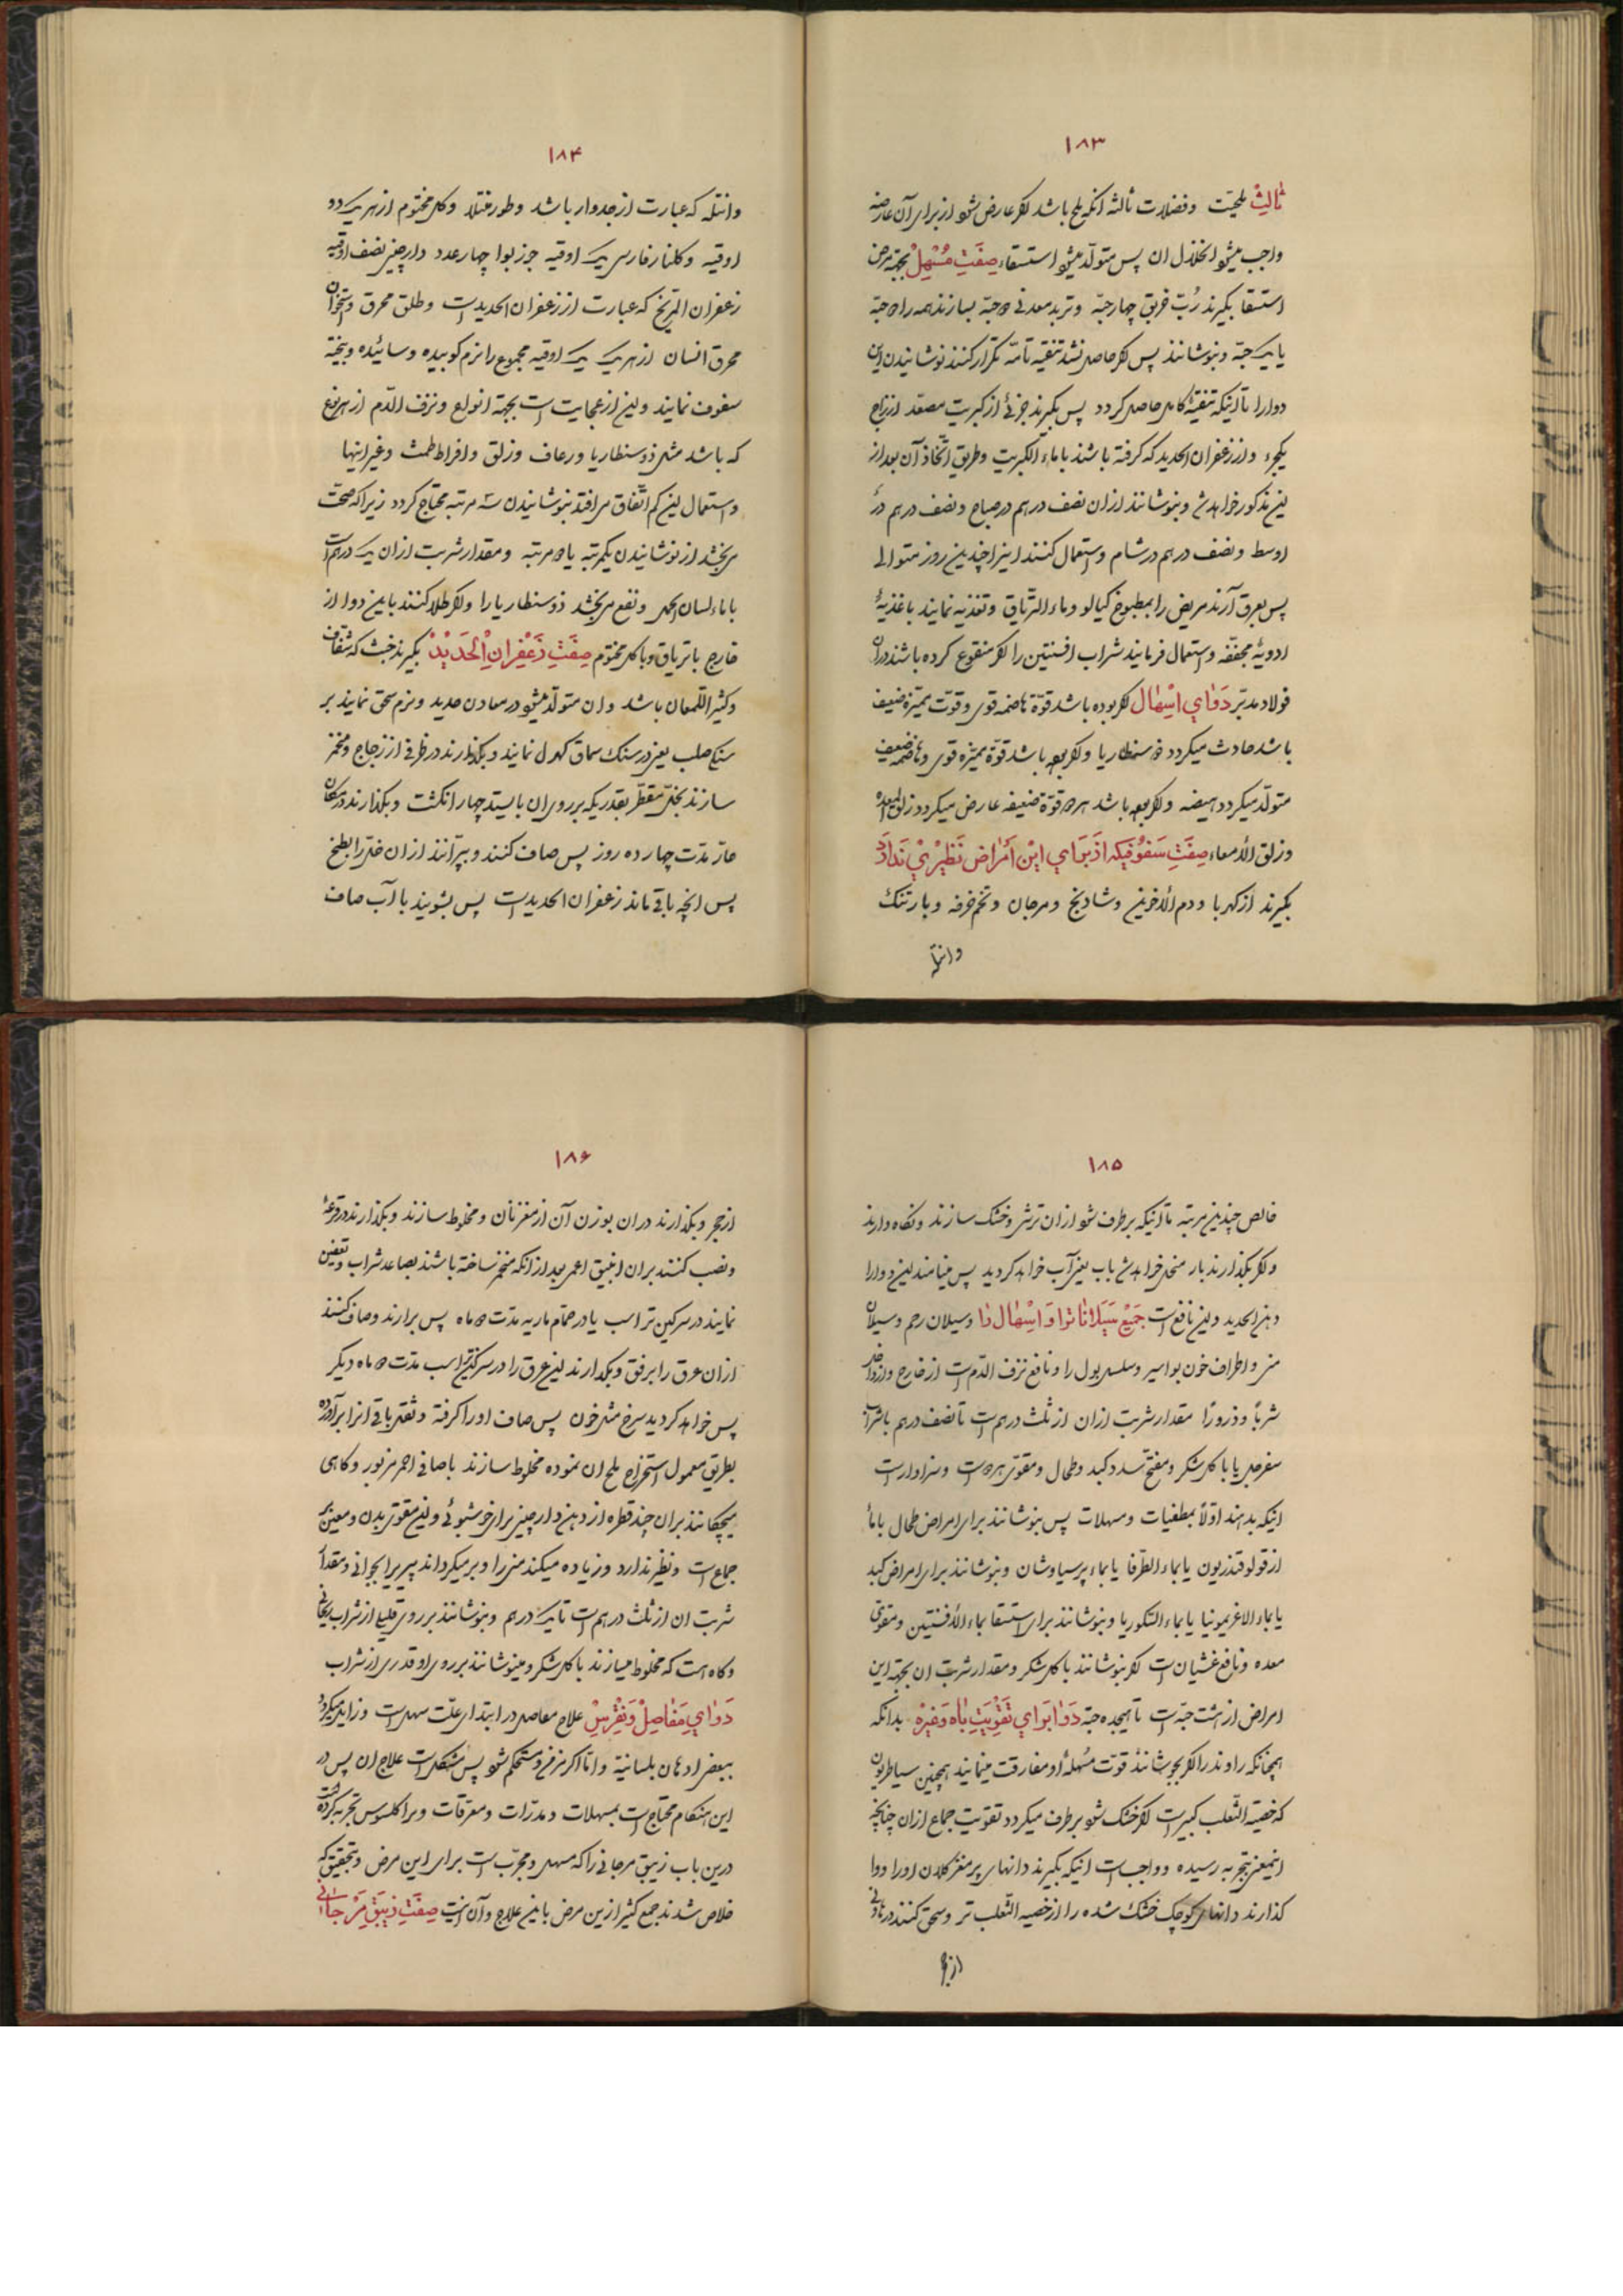 ۱۸۳
ثالث ملحیت وفضلات ثالثه انکه ملح باشد اکر عارض شود از برای آن عارضه
واجب میشود انحلال ان پس متولد میشود استسقاء صِفَتِ مُسْهِلْ بجهة مرض
استسقا بکیرند رُبّ خربق چهار حبّه وتربد معدنی حبّه بسازند همه را حبّه
یا یک حبّه وبنوشانند پس اکر حاصل نشد تنقیه تامّه تکرار کنند نوشانیدن این
دوا را تا اینکه تنقیهٔ کامل حاصل کردد پس بکیرند جزئی از کبریت مصعّد از زاج
یکجزء واز زعفران الحدید که کرفته باشند باماء الکبریت وطریق اتّخاذ آن بعد از
این مذکور خواهد شد وبنوشانند ازان نصف درهم در صباح ونصف درهم در
اوسط ونصف درهم در شام واستعمال کنند اینرا چندین روز متوالی
پس بعرق آرند مریض را بمطبوخ کیالو وماء التریاق وتغذیه نمایند باغذیهٔ
ادویهٔ مجففه واستعمال فرمایند شراب افسنتین را اکر منقوع کرده باشند دران
فولاد مدبّر دَوٰایِ اِسْهٰال اکر بوده باشد قوّة هاضمه قوی وقوّت ممیّزه ضعیف
باشد حادث میکردد ذوسنطاریا واکر بوده باشد قوّة ممیّزه قوی وهاضمه ضعیف
متولّد میکردد هیضه واکر بوده باشد هر دو قوّة ضعیفه عارض میکردد زلق المعده
وزلق الأمعاء صِفَتِ سَفُوفیکه اَز بَرایِ این اَمْراض نَظیریْ نَدارَد
بکیرند از کهربا ودم الأخوین وشادنج ومرجان وتخم خرفه وبارتنک
وانتله
۱۸۴
وانتله که عبارت از جدوار باشد وطور منتلا وکل مختوم از هر یک دو
اوقیه وکلنار فارسی یک اوقیه جوزبوا چهار عدد دارچینی نصف اوقیه
زعفران المرّیخ که عبارت از زعفران الحدید است وطلق محرق واستخوان
محرق انسان از هر یک یک اوقیه مجموع را نرم کوبیده وسائیده وبیخته
سفوف نمایند واین از عجایبت است بجهة انواع ونزف الدّم از هر نوع
که باشد مثل ذوسنطاریا ورعاف وزلق وافراط طمث وغیر اینها
واستعمال این کم اتّفاق می افتد بنوشانیدن سه مرتبه محتاج کردد زیرا که صحّت
می بخشد از نوشانیدن یکمرتبه یا دو مرتبه ومقدار شربت ازان یک درهم است
باماء لسان الحمل ونفع می بخشد ذوسنطاریا را واکر طلا کنند باین دوا از
خارج با تریاق وبا کل مختوم صِفَتِ زَعْفِرانِ الْحَدیدْ بکیرند خبث که شفّاف
وکثیر اللّمعان باشد وان متولّد میشود در معادن حدید ونرم سحق نمایند بر
سنک صلب یعنی در سنک سماق کهول نمایند وبکذارند در ظرفی از زجاج ومخمّر
سازند بخلّ مقطّر بقدریکه بر روی ان بایستد چهار انکشت وبکذارند در مکان
حارّ مدّت چهارده روز پس صاف کنند وبپرّانند ازان خلّ را بطبخ
پس انچه باقی ماند زعفران الحدید است پس بشویند با آب صاف
۱۸۵
خالص چندین مرتبه تا اینکه برطرف شود ازان ترشی وخشک سازند ونکاه دارند
واکر بکذارند بار منحل خواهد شد باب یعنی آب خواهد کردید پس مینامند این دوا را
دهن الحدید واین نافع است جَمیْعِ سَیَلاناتْرا وَاِسْهال را وسیلان رحم وسیلان
منی واطراف خون بواسیر وسلس بول را ونافع نزف الدّم است از خارج واز داخل
شرباً وذروراً مقدار شربت ازان از ثلث درهم است تا نصف درهم باشراب
سفرجل یا با کل شکر ومفتح سدد کبد وطحال ومقوّی هر دو است وسزاوار است
اینکه بدهند اوّلاً بمطفیات ومسهلات پس بنوشانند برای امراض طحال باماء
ازقولوقندریون یا بماء الطرفا یا بماء پرسیاوشان وبنوشانند برای امراض کبد
یا بماء الاغریمونیا یا بماء السّکوریا وبنوشانند برای استسقا بماء الأفسنتین ومقوّی
معده ونافع غشیان است اکر بنوشانند با کل شکر ومقدار شربت ان بجهة این
امراض از هشت حبّه است تا هیجده حبّه دَوا بَرایِ تَقْوِیَتِ باه وَغَیْرِهْ بدانکه
همچنانکه راوند را اکر بجوشانند قوّت مُسهلهٔ او مفارقت مینمایند همچنین سیاطریون
که خصیة الثّعلب کبیر است اکر خشک شود برطرف میکردد تقویت جماع ازان چنانچه
اینمعنی بتجربه رسیده وواجب است اینکه بکیرند دانهای پر مغز کلان اورا ووا
کذارند دانهای کوچک خشک شده را از خصیه الثّعلب تر وسحق کنند در هاونی
از حجر
۱۸۶
از حجر وبکذارند دران بوزن آن از مغز نان ومخلوط سازند وبکذارند در قرعهٔ
ونصب کنند بران انبیق اعمی بعد از انکه مخمّر ساخته باشند بصاعد شراب وتعفین
نمایند در سرکین تر اسب یا در حمّام ماریه مدّت دو ماه پس برارند وصاف کنند
ازان عرق را برفق وبکذارند این عرق را در سرکین تر اسب مدّت دو ماه دیکر
پس خواهد کردید سرخ مثل خون پس صاف اورا کرفته وثفل باقی انرا برآورده
بطریق معمول استخراج ملح ان نموده مخلوط سازند باصافی احمر مزبور وکاهی
میچکانند بران چند قطره از دهن دارچینی برای خوشبوئی واین مقوّی بدن ومعین بر
جماع است ونظیر ندارد وزیاده میکند منی را وبر میکرداند پیریرا بجوانی ومقدار
شربت ان از ثلث درهم است تا یک درهم وبنوشانند بر روی قلیلی از شراب ریحانی
وکاه هست که مخلوط میسازند با کل شکر ومینوشانند بر روی او قدری از شراب
دَوٰایِ مَفاصِلْ وَنِقْرِسْ علاج مفاصل در ابتدای علّت سهل است وزایل میکردد
ببعضی ادهان بلسانیّة وامّا اکر مزمن ومستحکم شود پس مشکل است علاج ان پس در
این هنکام محتاج است بمسهلات ومدرّات ومعرّقات وبراکلسوس تجربه کرده است
درین باب زیبق مرجانی را که مسهل ومجرّب است برای این مرض وبتحقیق که
خلاص شدند جمع کثیر ازین مرض باین علاج وآن اینست صِفَتِ زیبَقِ مَرْجانی